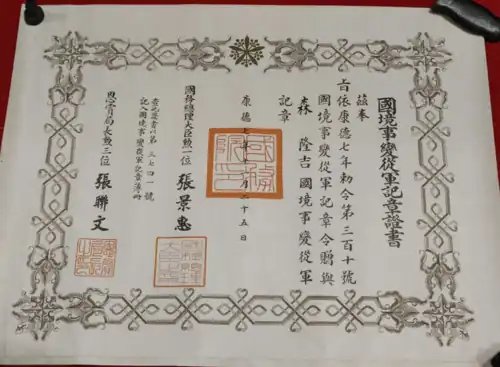 國境事變從軍記章證書
茲奉
旨依康德七年勅令第三百十號
國境事變從軍記章令贈與
森 隆吉 國境事變從軍
記章
康德七年 月二十五日
國務院印
國務總理大臣勲一位 張景惠
查此證書以第三七四一號
記入國境事變從軍記章簿冊
恩賞局長勲三位 張聯文